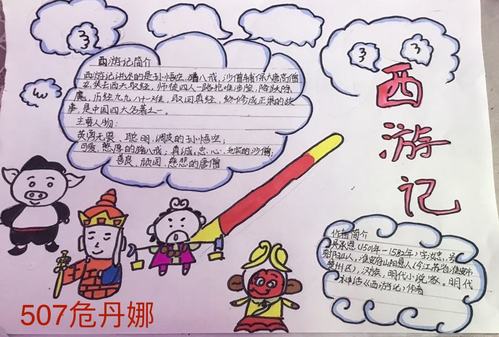 西游记简介
西游记讲述的是孙悟空、猪八戒、沙僧辅保大唐高僧
玄奘去西天取经，师徒四人一路抢难步险，降妖除
魔，历经九九八十一难，取回真经，终修成正果的故
事，是中国四大名著之一。
主要人物：
英勇无畏、聪明、调皮的孙悟空，
可爱、憨厚的猪八戒，真诚、忠心、老实的沙僧，
善良、顽固、慈悲的唐僧
西
游
记
作者简介
吴承恩（1501年－1582年）字汝忠，号
射阳山人，淮安府山阳县人（今江苏省淮安市
淮州区），汉族，明代小说家。明代
《西游记》作者
507危丹娜